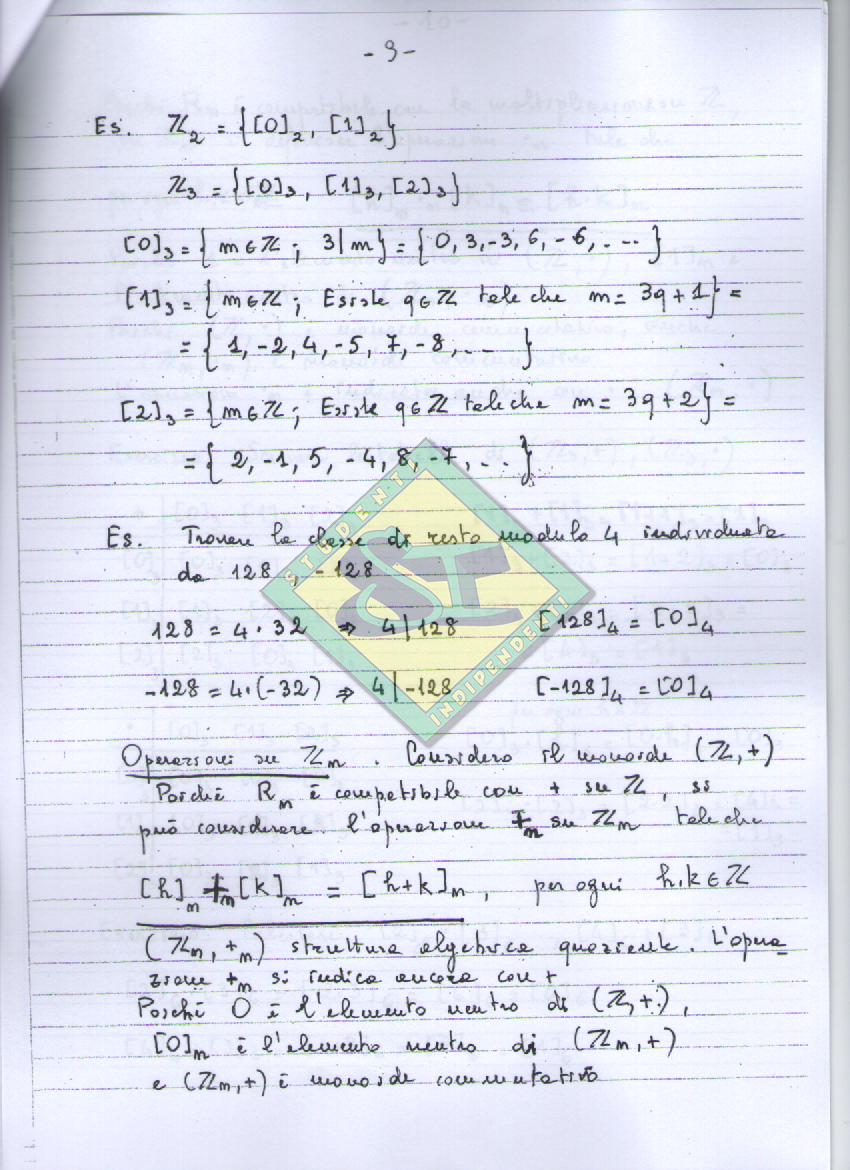 - 9 -
Es. ℤ₂ = {[0]₂, [1]₂}
ℤ₃ = {[0]₃, [1]₃, [2]₃}
[0]₃ = {m∈ℤ; 3|m} = {0, 3, -3, 6, -6, . --- }
[1]₃ = {m∈ℤ; Esiste q∈ℤ tale che m = 3q+1} =
= {1, -2, 4, -5, 7, -8, . . . . }
[2]₃ = {m∈ℤ; Esiste q∈ℤ tale che m = 3q+2} =
= {2, -1, 5, -4, 8, -7, . . . }
Es. Trovare la classe di resto modulo 4 individuata
da 128, -128
128 = 4·32 ⇒ 4|128 [128]₄ = [0]₄
-128 = 4·(-32) ⇒ 4|-128 [-128]₄ = [0]₄
Operazioni su ℤₘ. Considero il monoide (ℤ,+)
Poiché Rₘ è compatibile con + su ℤ, si
può considerare l'operazione +ₘ su ℤₘ tale che
[h]ₘ +ₘ [k]ₘ = [h+k]ₘ, per ogni h,k∈ℤ
(ℤₘ, +ₘ) struttura algebrica quoziente. L'opera
zione +ₘ si indica ancora con +
Poiché 0 è l'elemento neutro di (ℤ,+),
[0]ₘ è l'elemento neutro di (ℤₘ,+)
e (ℤₘ,+) è monoide commutativo
STUDENTI
SI
INDIPENDENTI